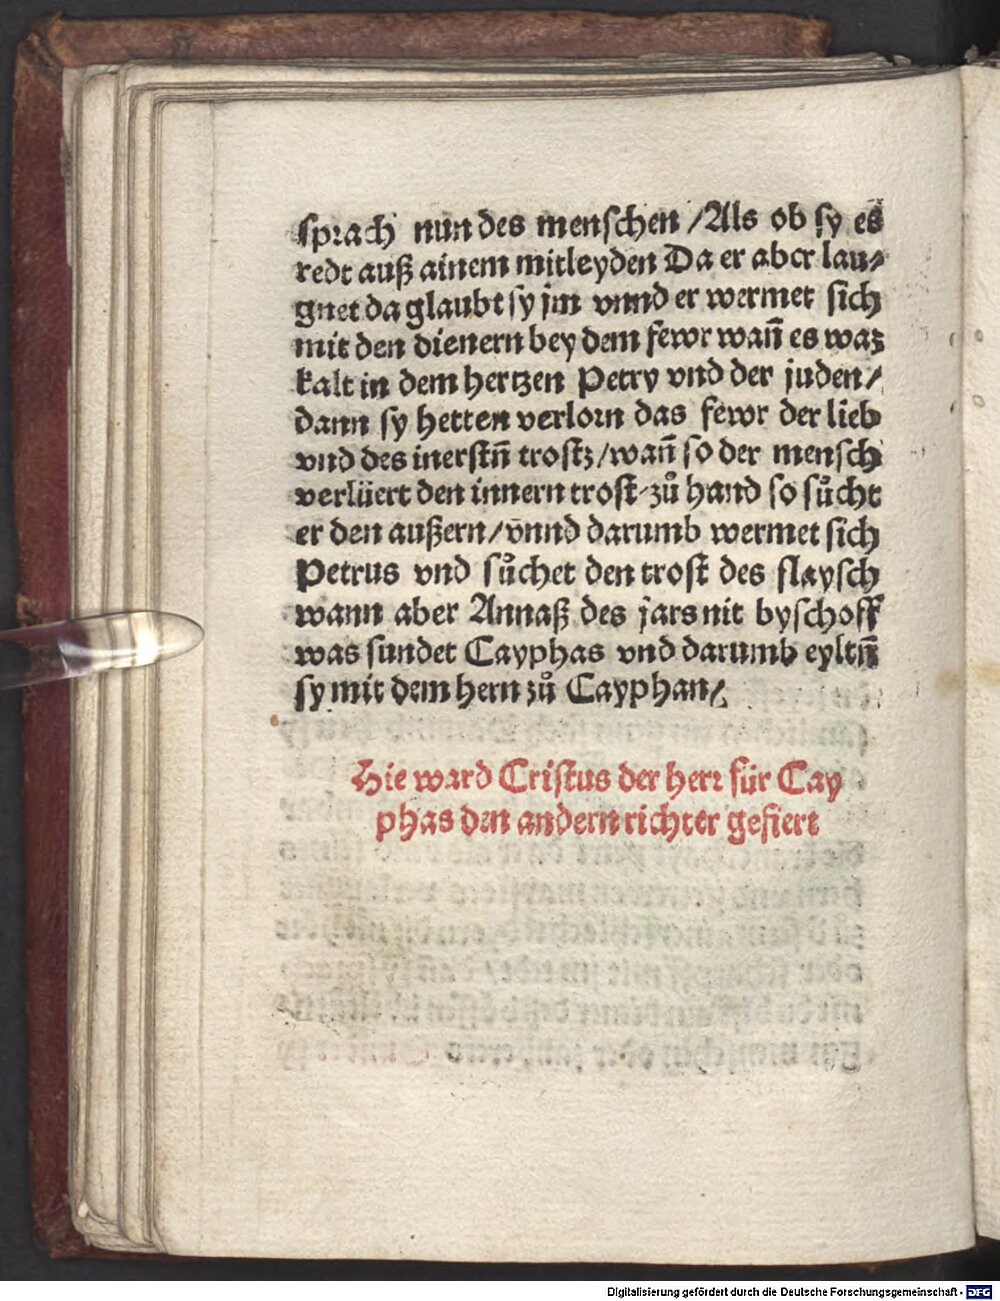 sprach nun des menschen /Als ob sy es
redt auß ainem mitleyden Da er aber lau⸗
gnet da glaubt sy jm vnnd er wermet sich
mit den dienern bey dem fewr wañ es waz
kalt in dem hertzen Petry vnd der juden/
dann sy hetten verlorn das fewr der lieb
vnd des inerstñ trostz/wañ so der mensch
verlüert den innern trost zů hand so sůcht
er den außern/vnnd darumb wermet sich
Petrus vnd sůchet den trost des flaysch
wann aber Annaß des jars nit byschoff
was sunder Cayphas vnd darumb eyltñ
sy mit dem hern zů Cayphan/
Hie ward Cristus der herr für Cay
phas den andern richter gefiert
Digitalisierung gefördert durch die Deutsche Forschungsgemeinschaft - DFG